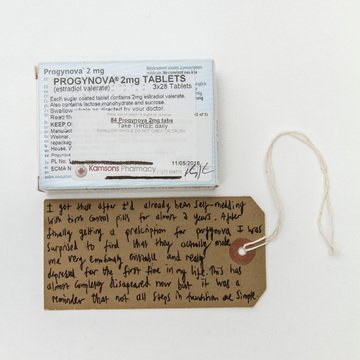 Progynova® 2 mg
PROGYNOVA® 2mg TABLETS
(estradiol valerate) 3x28 Tablets
Each sugar coated tablet contains 2mg estradiol valerate.
Also contains lactose monohydrate and sucrose.
Swallow whole as directed by your doctor.
Read the
KEEP O
84 Progynova 2mg tabs
Take THREE daily
SWALLOW WHOLE DO NOT CHEW OR CRUSH
House, W
PL No:
11/05/2016
Kamsons Pharmacy
ECMA N
I got these after I'd already been self-medding
with birth control pills for almost 2 years. After
finally getting a prescription for progynova I was
surprised to find that they actually made
me very emotionally unstable and really
depressed for the first time in my life. This has
almost completely disapeared now but it was a
reminder that not all steps in transition are simple.